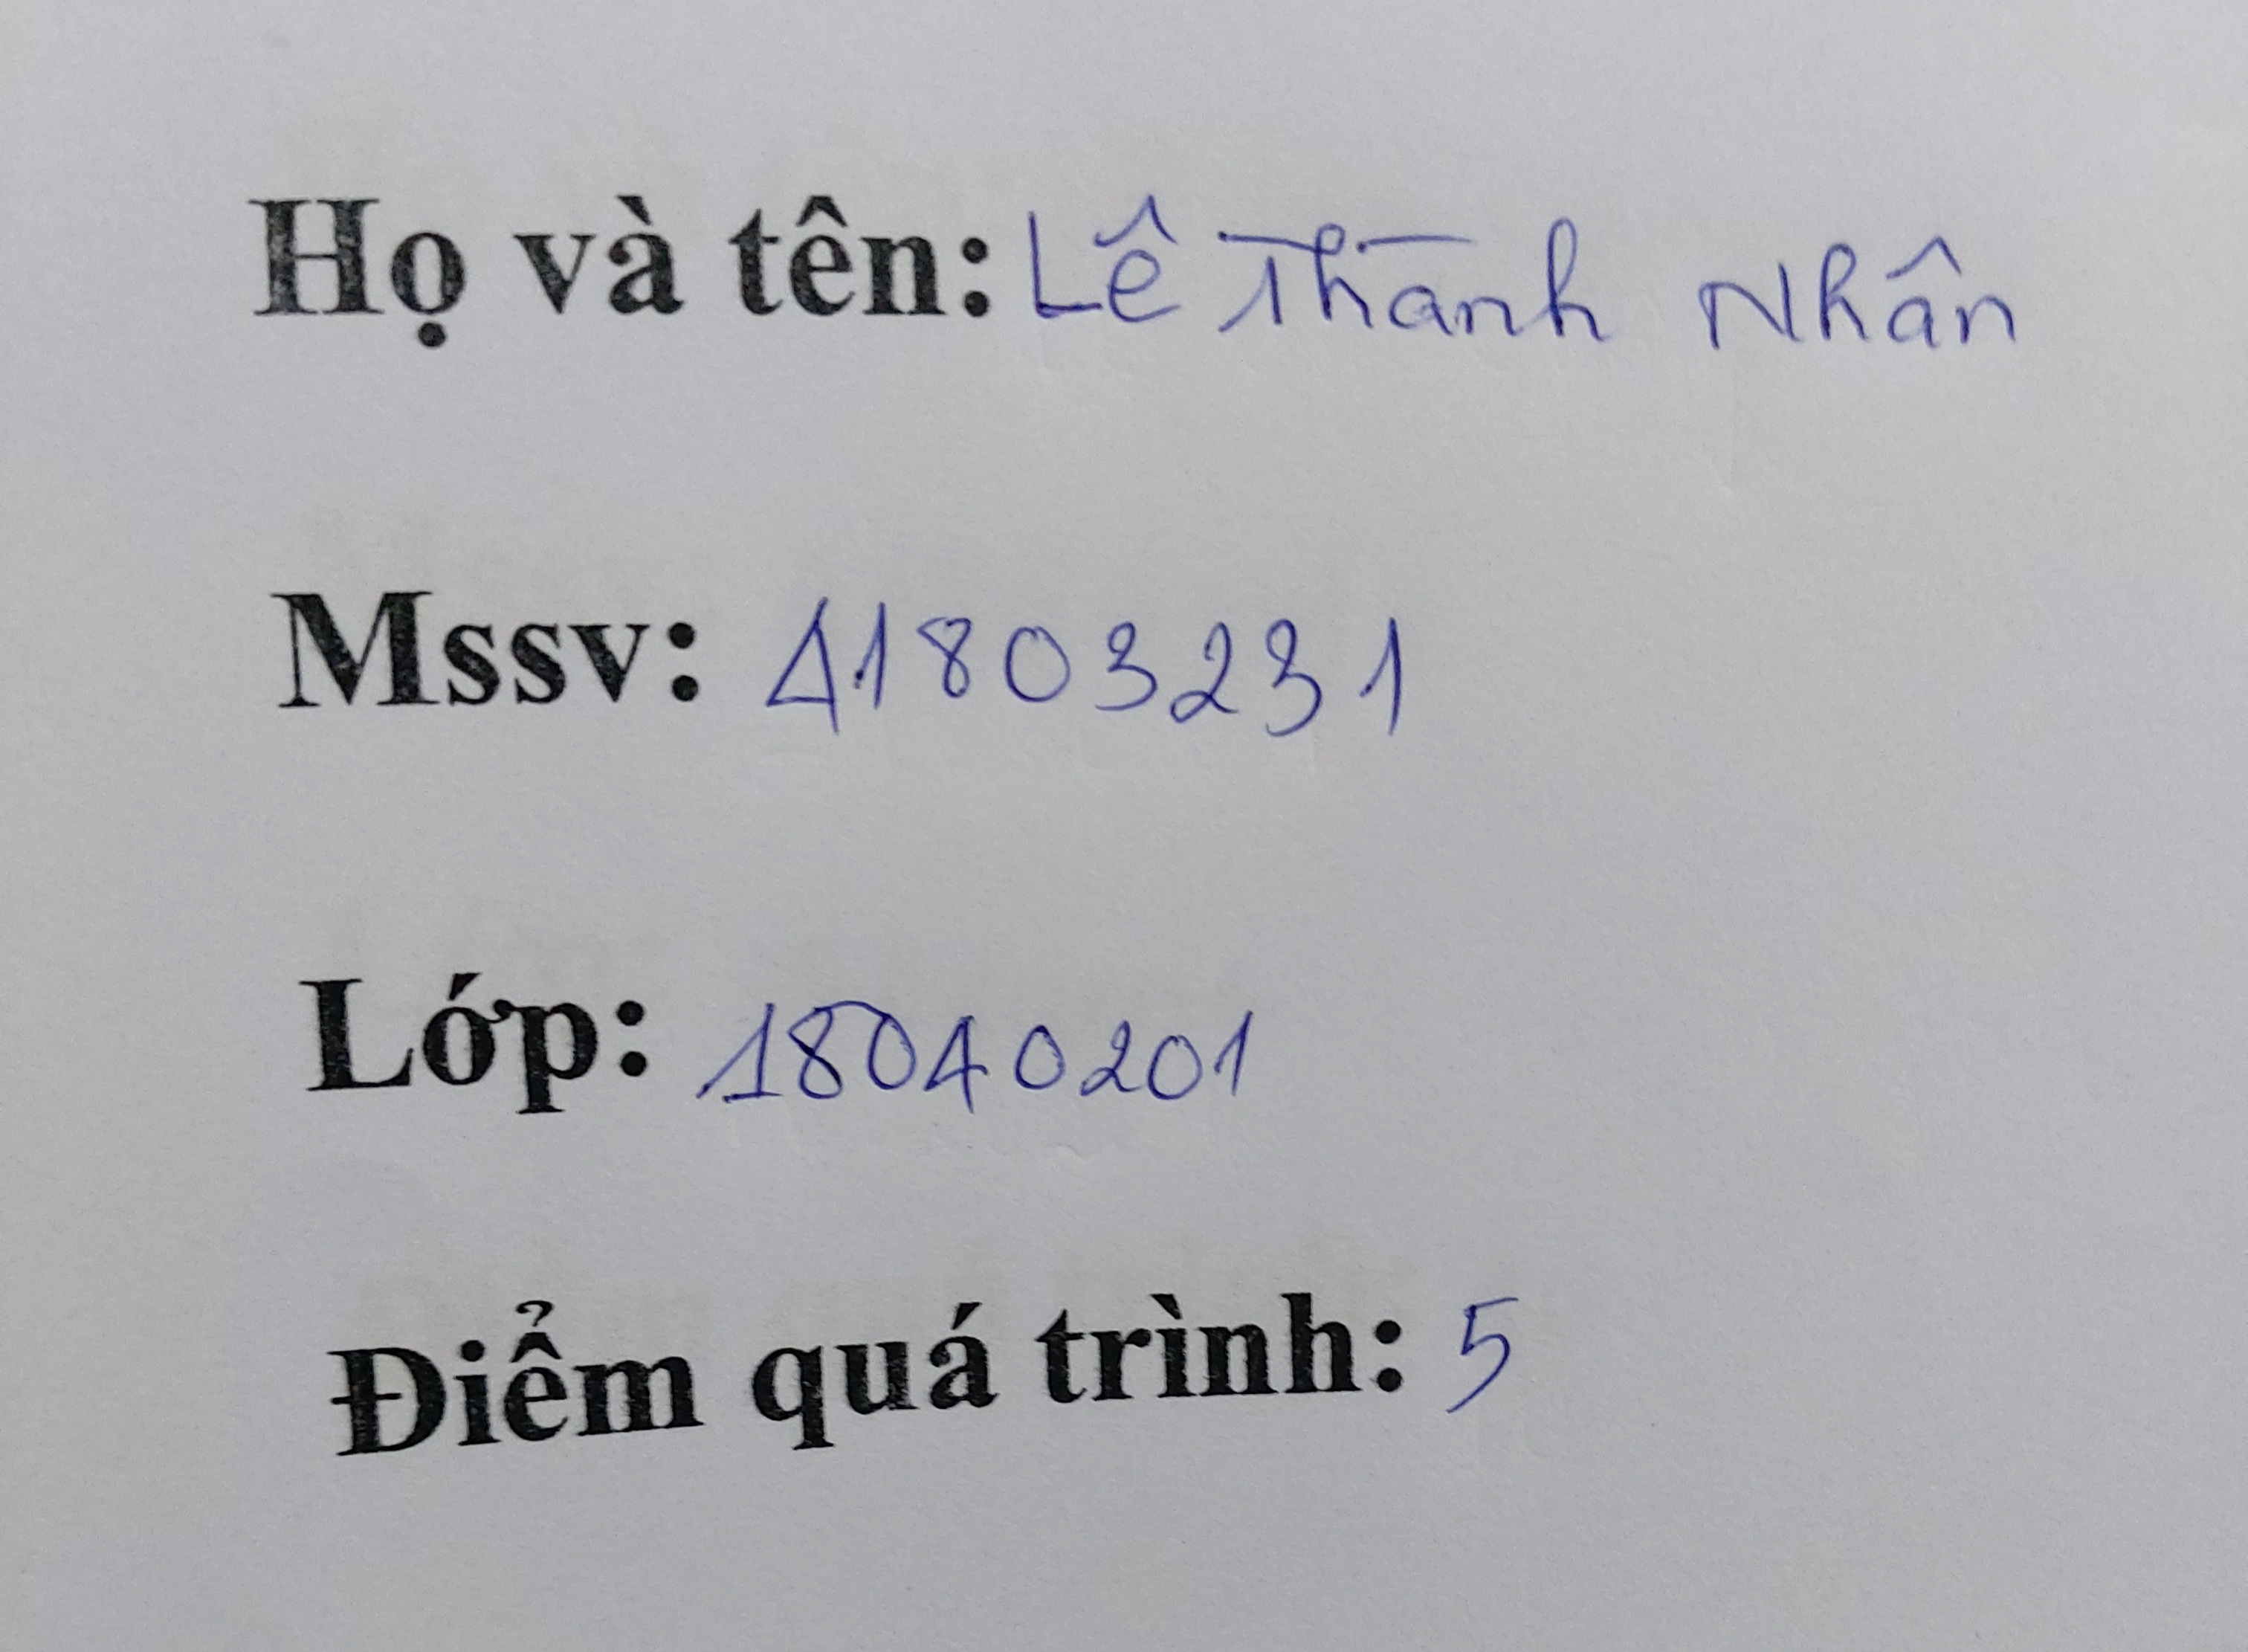 Họ và tên: Lê Thành Nhân
Mssv: 41803231
Lớp: 18040201
Điểm quá trình: 5